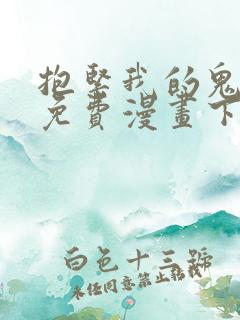 抱緊我的鬼
免費漫畫下
白色十三號
未经同意禁止转载